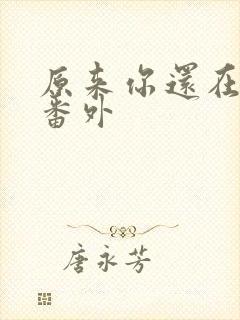 原来你還在
番外
唐永芳